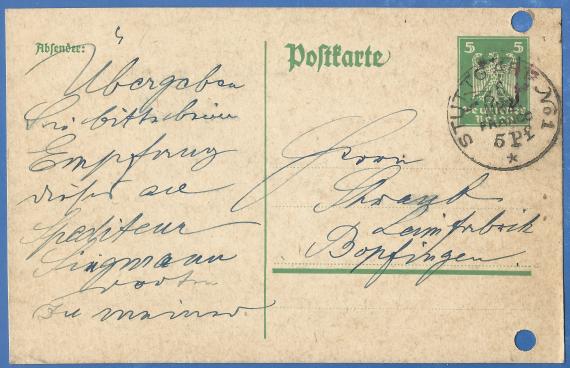 Absender:
Übergeben
Sie bitte beim
Empfang
dieses an
Spediteur
Singmann
dorten
zu meiner
Postkarte
5 5
Deutsches
Reich
STUTTGART No 1
5 Pf
Herrn
Schwenk
Leimfabrik
Bopfingen